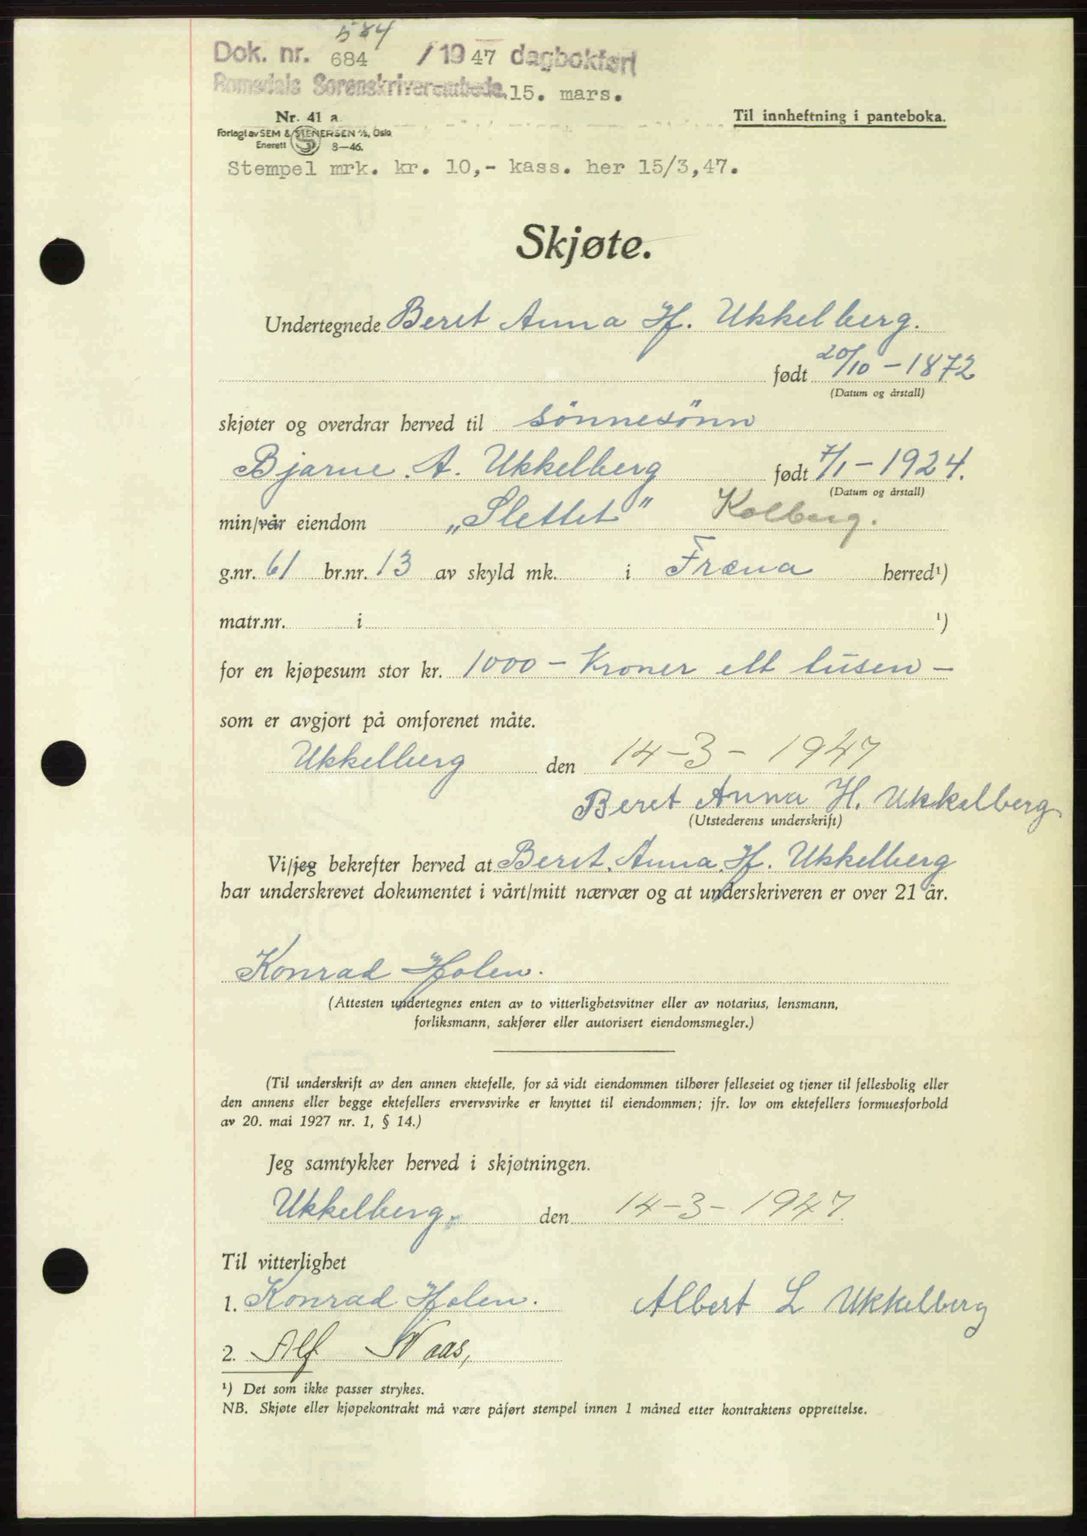 584
Dok. nr. 684 /1947 dagbokført
Romsdals Sorenskriverembede. 15. mars.
Nr. 41 a
Til innheftning i panteboka.
Forlagt av SEM & STENERSEN A/S, Oslo
Enerett 8—46.
Stempel mrk. kr. 10,- kass. her 15/3,47.
Skjøte.
Undertegnede Beret Anna H. Ukkelberg.
født 20/10 - 1872
(Datum og årstall)
skjøter og overdrar herved til sönnesönn
Bjarne. A. Ukkelberg født 7/1 - 1924.
(Datum og årstall)
min/vår eiendom „Slettet" Kolberg.
g.nr. 61 br.nr. 13 av skyld mk. i Fræna herred¹)
matr.nr. i ¹)
for en kjøpesum stor kr. 1000 - Kroner ett tusen -
som er avgjort på omforenet måte.
Ukkelberg den 14-3-1947
Beret Anna H. Ukkelberg
(Utstederens underskrift)
Vi/jeg bekrefter herved at Beret. Anna. H. Ukkelberg
har underskrevet dokumentet i vårt/mitt nærvær og at underskriveren er over 21 år.
Konrad Holen.
(Attesten undertegnes enten av to vitterlighetsvitner eller av notarius, lensmann,
forliksmann, sakfører eller autorisert eiendomsmegler.)
(Til underskrift av den annen ektefelle, for så vidt eiendommen tilhører felleseiet og tjener til fellesbolig eller
den annens eller begge ektefellers ervervsvirke er knyttet til eiendommen; jfr. lov om ektefellers formuesforhold
av 20. mai 1927 nr. 1, § 14.)
Jeg samtykker herved i skjøtningen.
Ukkelberg. den 14-3-1947.
Til vitterlighet
1. Konrad Holen. Albert L Ukkelberg
2. Alf Naas,
¹) Det som ikke passer strykes.
NB. Skjøte eller kjøpekontrakt må være påført stempel innen 1 måned etter kontraktens opprettelse.